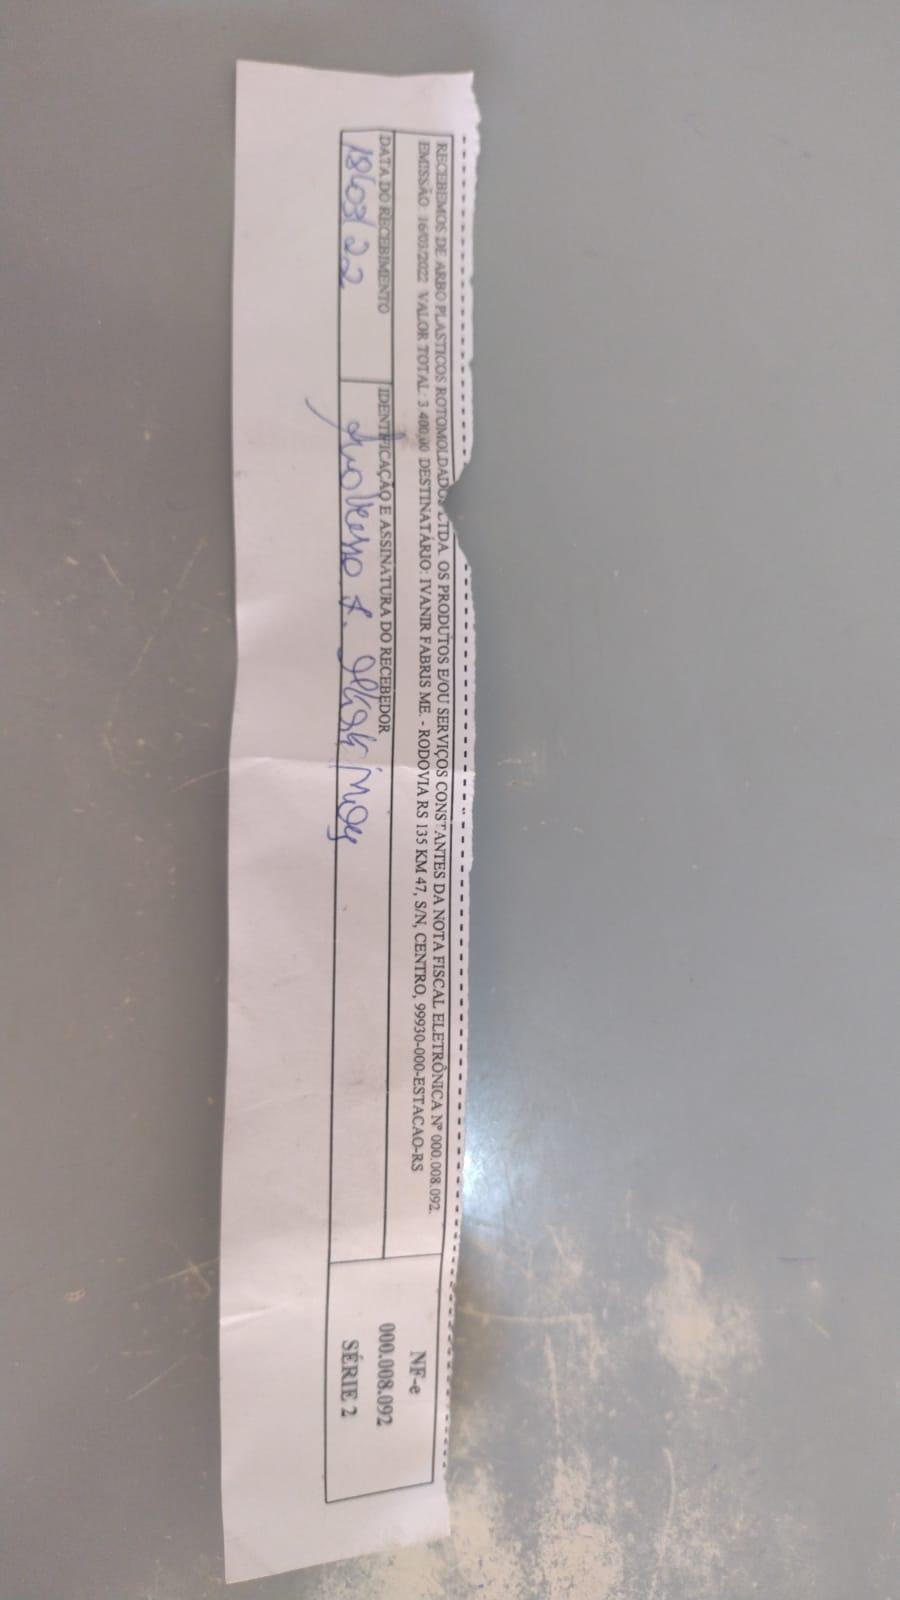 RECEBEMOS DE ARBO PLASTICOS ROTOMOLDADOS LTDA. OS PRODUTOS E/OU SERVIÇOS CONSTANTES DA NOTA FISCAL ELETRÔNICA Nº 000.008.092.
EMISSÃO: 16/03/2022 VALOR TOTAL: 3.400,00 DESTINATÁRIO: IVANIR FABRIS ME. - RODOVIA RS 135 KM 47, S/N, CENTRO, 99930-000-ESTACAO-RS
DATA DO RECEBIMENTO
18/03/22
IDENTIFICAÇÃO E ASSINATURA DO RECEBEDOR
NF-e
000.008.092
SÉRIE 2